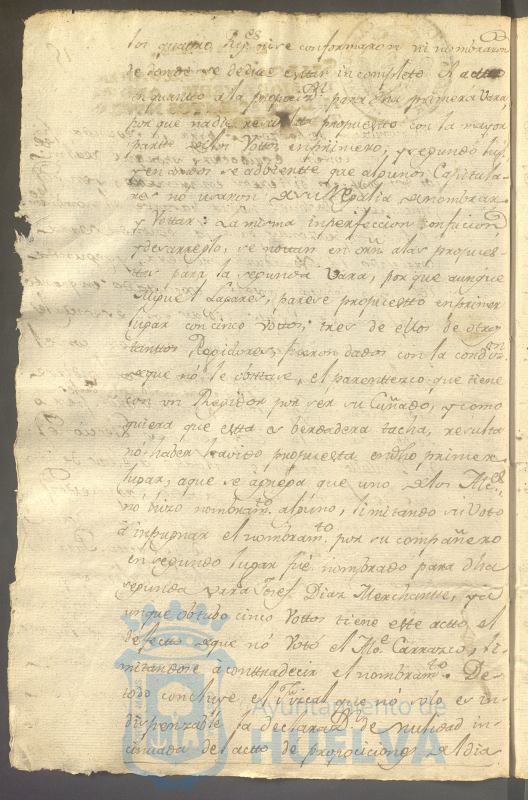 los quatro Reg.es ni se conformaron ni nombraron
de donde se deduce estar incompleto el acto
en quanto a la proposic.n para dha primera Vara,
porque nadie resulta propuesto con la mayor
parte de los Vottos en primero, y segundo lug.r
y en ambos se advierte que algunos Capitula-
res no usaron de su Regalia de nombrar
y Vottar: La misma imperfeccion confucion
y desarreglo, se notan en orñ a las propues
tas para la segunda Vara, porque aunque
Miguel Casares, parese propuesto en primer
lugar con cinco Vottos, tres de ellos de otros
tanttos Regidores, fueron dados con la condiz.on
de que no le obstase, el parentterco que tiene
con un Regidor por ser su Cuñado, y como
quiera que esta es berdadera tacha, resulta
no haber havido propuesta en dho primer
lugar, a que se agrega que uno de los Alc.es
no hizo nombram.to alguno, limitando su Voto
a impugnar el nombram.to por su compañero
en segundo lugar fue nombrado para dha
segunda vara Josef Diaz Merchante, y a
unque obtubo cinco Vottos tiene este actto, el
defecto de que no Voto el Alc.e Carrasco, li-
mitandose a conttradecir el nombram.to. De
todo concluye el Fiscal que no solo es in-
dispenzable la declaraz.on de nulidad in-
cinuada del acto de proposiciones al dia
Ayuntamiento de
HUELVA